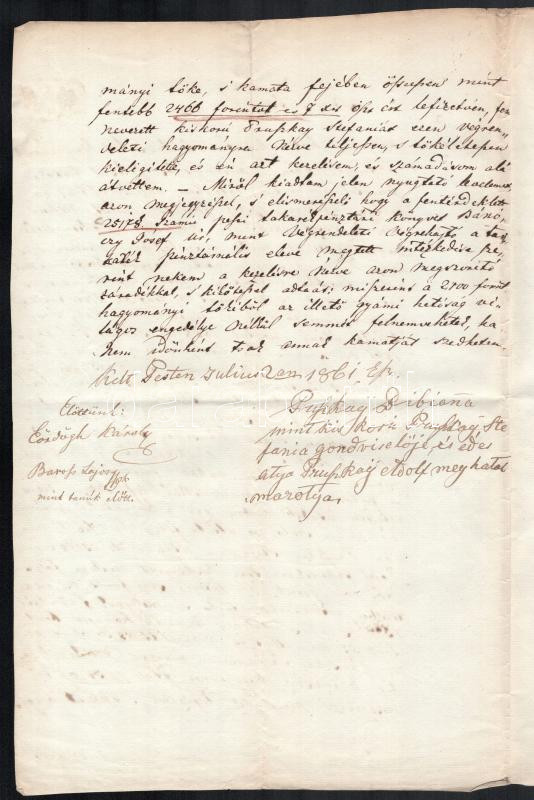 mányi tőke, s kamata fejében összesen mint
fentebb 2466 forintot és 7 xrs öpő cst lefizetvén,
nevezett kiskorú Pruszkay Stefaniát ezen végren-
deleti hagyományra nézve teljesen, s tökéletesen
kielégítette, és én azt kezelésem, és számadásom alá
átvettem. — Miről kiadtam jelen nyugtató
azon megjegyzéssel, s elismeréssel hogy a fentérdeklett
25178 számú pesti takarékpénztári könyvet
József úr, mint végrendeleti végrehajtó a
pénztárnál eleve megtett intézkedése sze-
rint nekem a kezelésre nézve azon megszorító
záradékkal, s kikötéssel adta át miszerint a 2100 forint
hagyományi tőkéből az illető gyámi hatóság vi-
lágos engedélye nélkül semmit felnemvehetek, ha-
nem időnként csak annak kamatját szedhetem.
Kelt Pesten Julius 2án 1861
Előttünk:
Eördögh Károly
Baross Lajos
mint tanúk előtt.
Pruszkay Bibiana
mint kis korú Pruszkay Ste
fania gondviselője, és édes
atya Pruszkay Adolf meghatal
mazottya